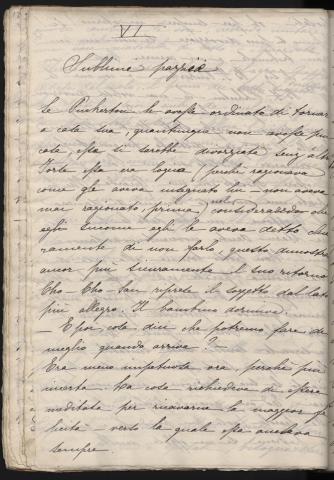 VI
Sublime pazzia
Se Pinkerton le avesse ordinato di tornar
a casa sua, quantunque non avesse più
casa, essa si sarebbe divorziata senz'altro
Forse essa era logica, perché ragionava
come gli aveva insegnato lui – non aveva
mai ragionato, prima, nel considerando che
egli siccome egli le aveva detto chia
ramente di non farlo, questo dimostra
ancor più sicuramente il suo ritorno
Cho-Cho-San riprese il soggetto dal lato
più allegro. Il bambino dormiva.
– E poi, cosa, dici che potremo fare di
meglio quando arriva? –
Era meno impetuosa ora perché più
incerta. La cosa richiedeva di essere
meditata per ricavarne la maggior fe
licità – verso la quale essa anelava
sempre.